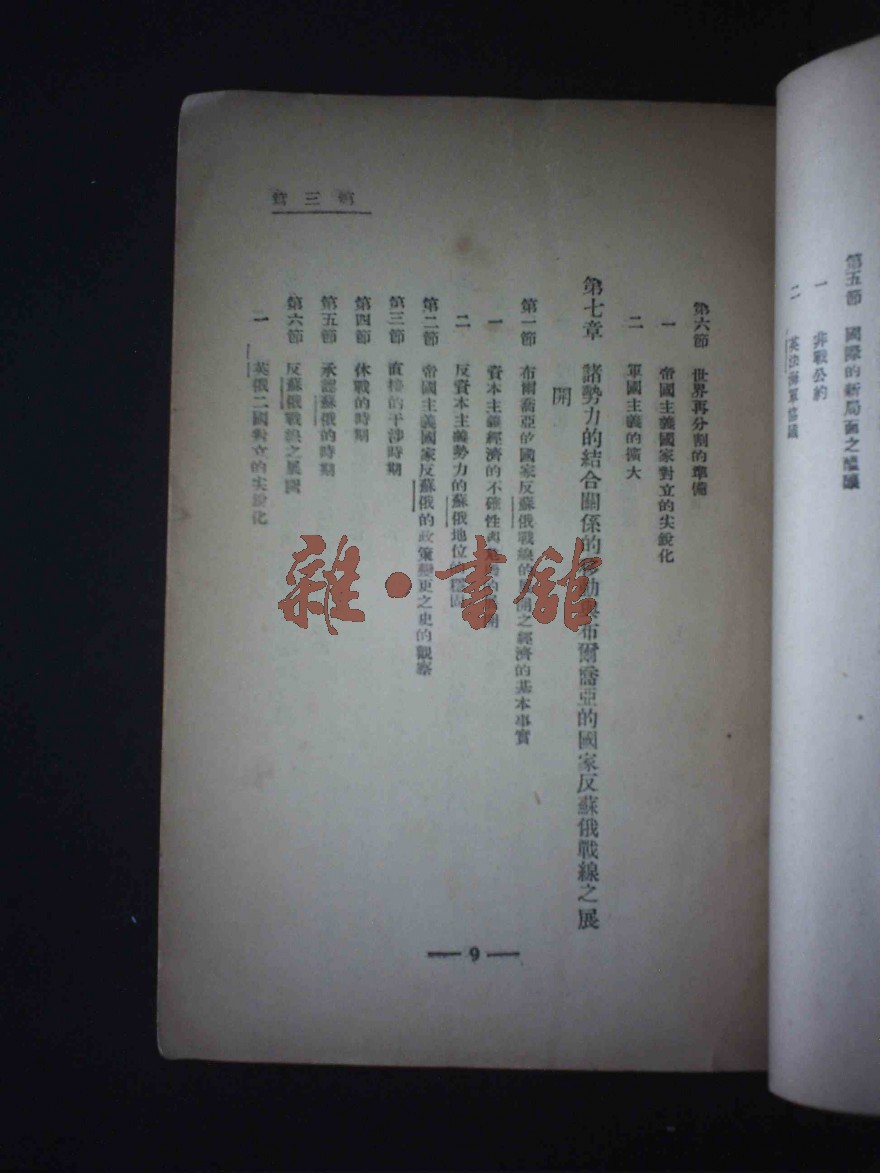 第五節　國際的新局面之醞釀
一　非戰公約
二　英法海軍協議
第三篇
第六節　世界再分割的準備
一　帝國主義國家對立的尖銳化
二　軍國主義的擴大
第七章　諸勢力的結合關係的布爾喬亞的國家反蘇俄戰線之展
開
第一節　布爾喬亞的國家反蘇俄戰線的展開之經濟的基本事實
一　資本主義經濟的不確性
二　反資本主義勢力的蘇俄地位的穩固
第二節　帝國主義國家反蘇俄的政策變更之史的觀察
第三節　直接的干涉時期
第四節　休戰的時期
第五節　承認蘇俄的時期
第六節　反蘇俄戰線之展開
一　英俄二國對立的尖銳化
— 9 —
雜·書館